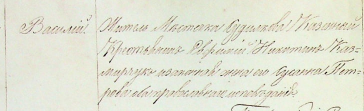 Василій
Житель Мѣстечка Судилкова, Казенный
Крестьянинъ Ефремій Никитинъ Каз-
мирчукъ законная жена его Еѵдокія Пет-
рова оба православнаго исповѣданія